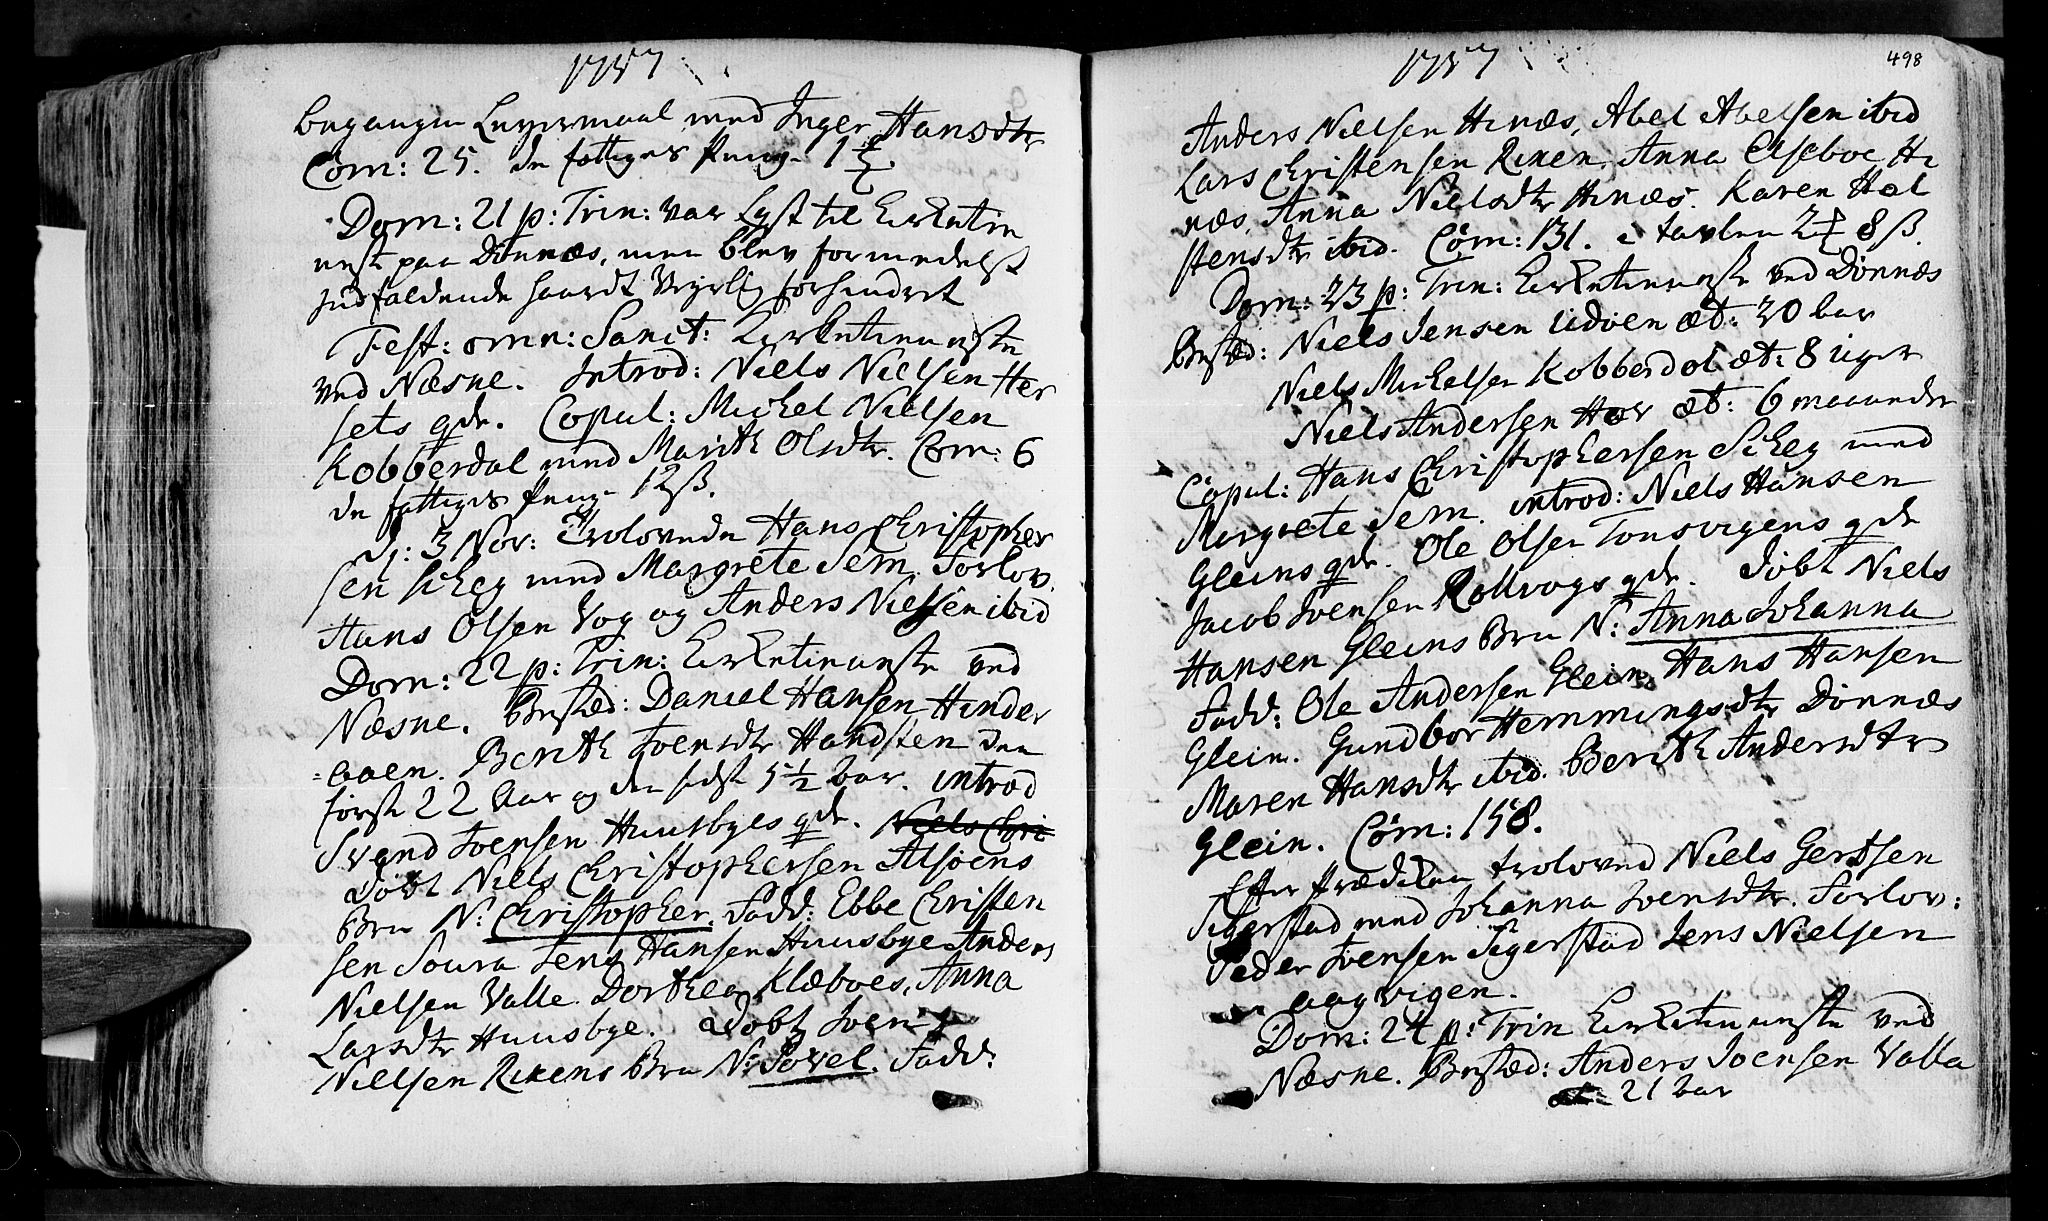 1757
begangen Leyermaal med Inger Hansdtr
Com: 25. de fattiges Penge 1
Dom: 21 p: Trin: var lyst til Kirketien
nest paa Dønnæs, men blev formedelst
indfaldende haardt Veyrlig forhindret
Fest: omn: Sanct: Kirketienneste
ved Næsne. Introd: Niels Nielsen Her
sets qde. Copul: Michel Nielsen
Kobberdal med Marith Olsdtr. Com: 6
de fattiges Penge 12 ß.
d: 3 Nov: Trolovede Hans Christopher
sen Scheg med Margrete Sem. Forlov.
Hans Olsen Vog og Anders Nielsen ibid
Dom: 22 p: Trin: Kirketienneste ved
Næsne. Begræd: Daniel Hansen Hinder
aaen. Berith Joensdtr Handsten den
første 22 Aar og den sidste 5 1/2 aar. introd
Svend Joensen Huusbyes qde. Niels Chri
Døbt Niels Christophersen Alsøens
Brn N: Christopher. Fadd: Ebbe Christen
sen Soura Jens Hansen Huusbye Anders
Nielsen Valle. Dorthea Klæboes, Anna
Larsdtr Huusbye. Døbt Joen
Nielsen Rixens Brn N: Povel. Fadd:
1757
498
Anders Nielsen Hinæs, Abel Abelsen ibid
Lars Christensen Rixen. Anna Elseboe Hi
næs, Anna Nielsdtr Hinæs. Karen Hal
stensdtr ibid. Com: 131. i tavlen 2 8 ß.
Dom: 23 p: Trin: Kirketienneste ved Dønnæs
Niels Jensen Udøen æt: 30 aar
Niels Michelsen Kobberdal æt: 8 uger
Niels Andersen Hær æt: 6 maaneder
Copul: Hans Christophersen Scheg med
Margrete Sem. introd: Niels Hansen
Gleins qde. Ole Olsen Tonsvigens qde
Jacob Joensen Rollvogs qde. Døbt Niels
Hansen Gleins Brn N: Anna Johanna
Fadd: Ole Andersen Glein, Hans Hansen
Glein. Gundbor Hemmingsdtr Dønnæs
Maren Hansdtr ibid. Berith Andersdtr
Glein. Com: 158.
Efter Prædiken troloved Niels Gertsen
Sigerstad med Johanna Joensdtr. Forlov:
Peder Joensen Sigerstad Jens Nielsen
aagvigen.
Dom: 24 p: Trin Kirketienneste ved
Næsne. Anders Joensen Valla
æt: 21 aar